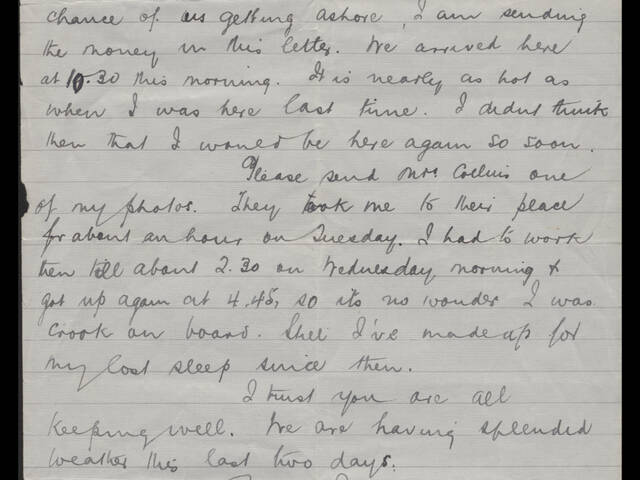 chance of us getting ashore, I am sending
the money in this letter. We arrived here
at 10.30 this morning. It is nearly as hot as
when I was here last time. I didnt think
then that I would be here again so soon.
Please send Mrs Collins one
of my photos. They took me to their place
for about an hour on Tuesday. I had to work
then till about 2.30 on Wednesday morning &
got up again at 4.45, so its no wonder I was
crook on board. Still I've made up for
my lost sleep since then.
I trust you are all
keeping well. We are having splended
weather this last two days.